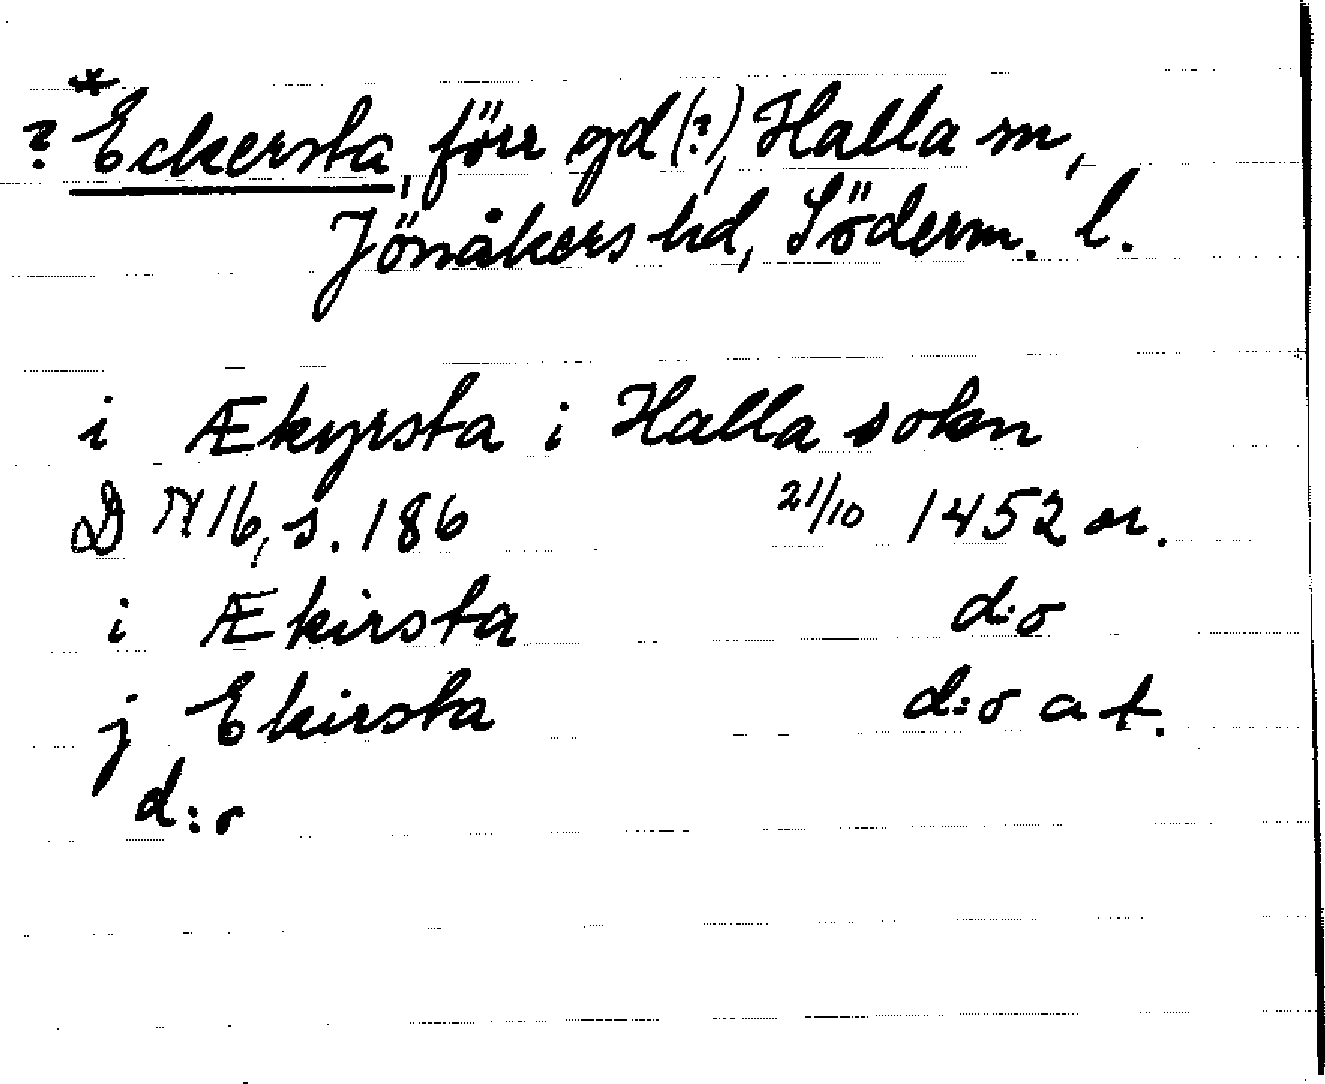 ? *Eckersta, förr gd (?), Halla sn,
Jönåkers hd, Söderm. l.
i Ækyrsta i Halla sokn
DN 16, s. 186 21/10 1452 or.
i Ækirsta d:o
j Ekirsta d:o a t.
d:o